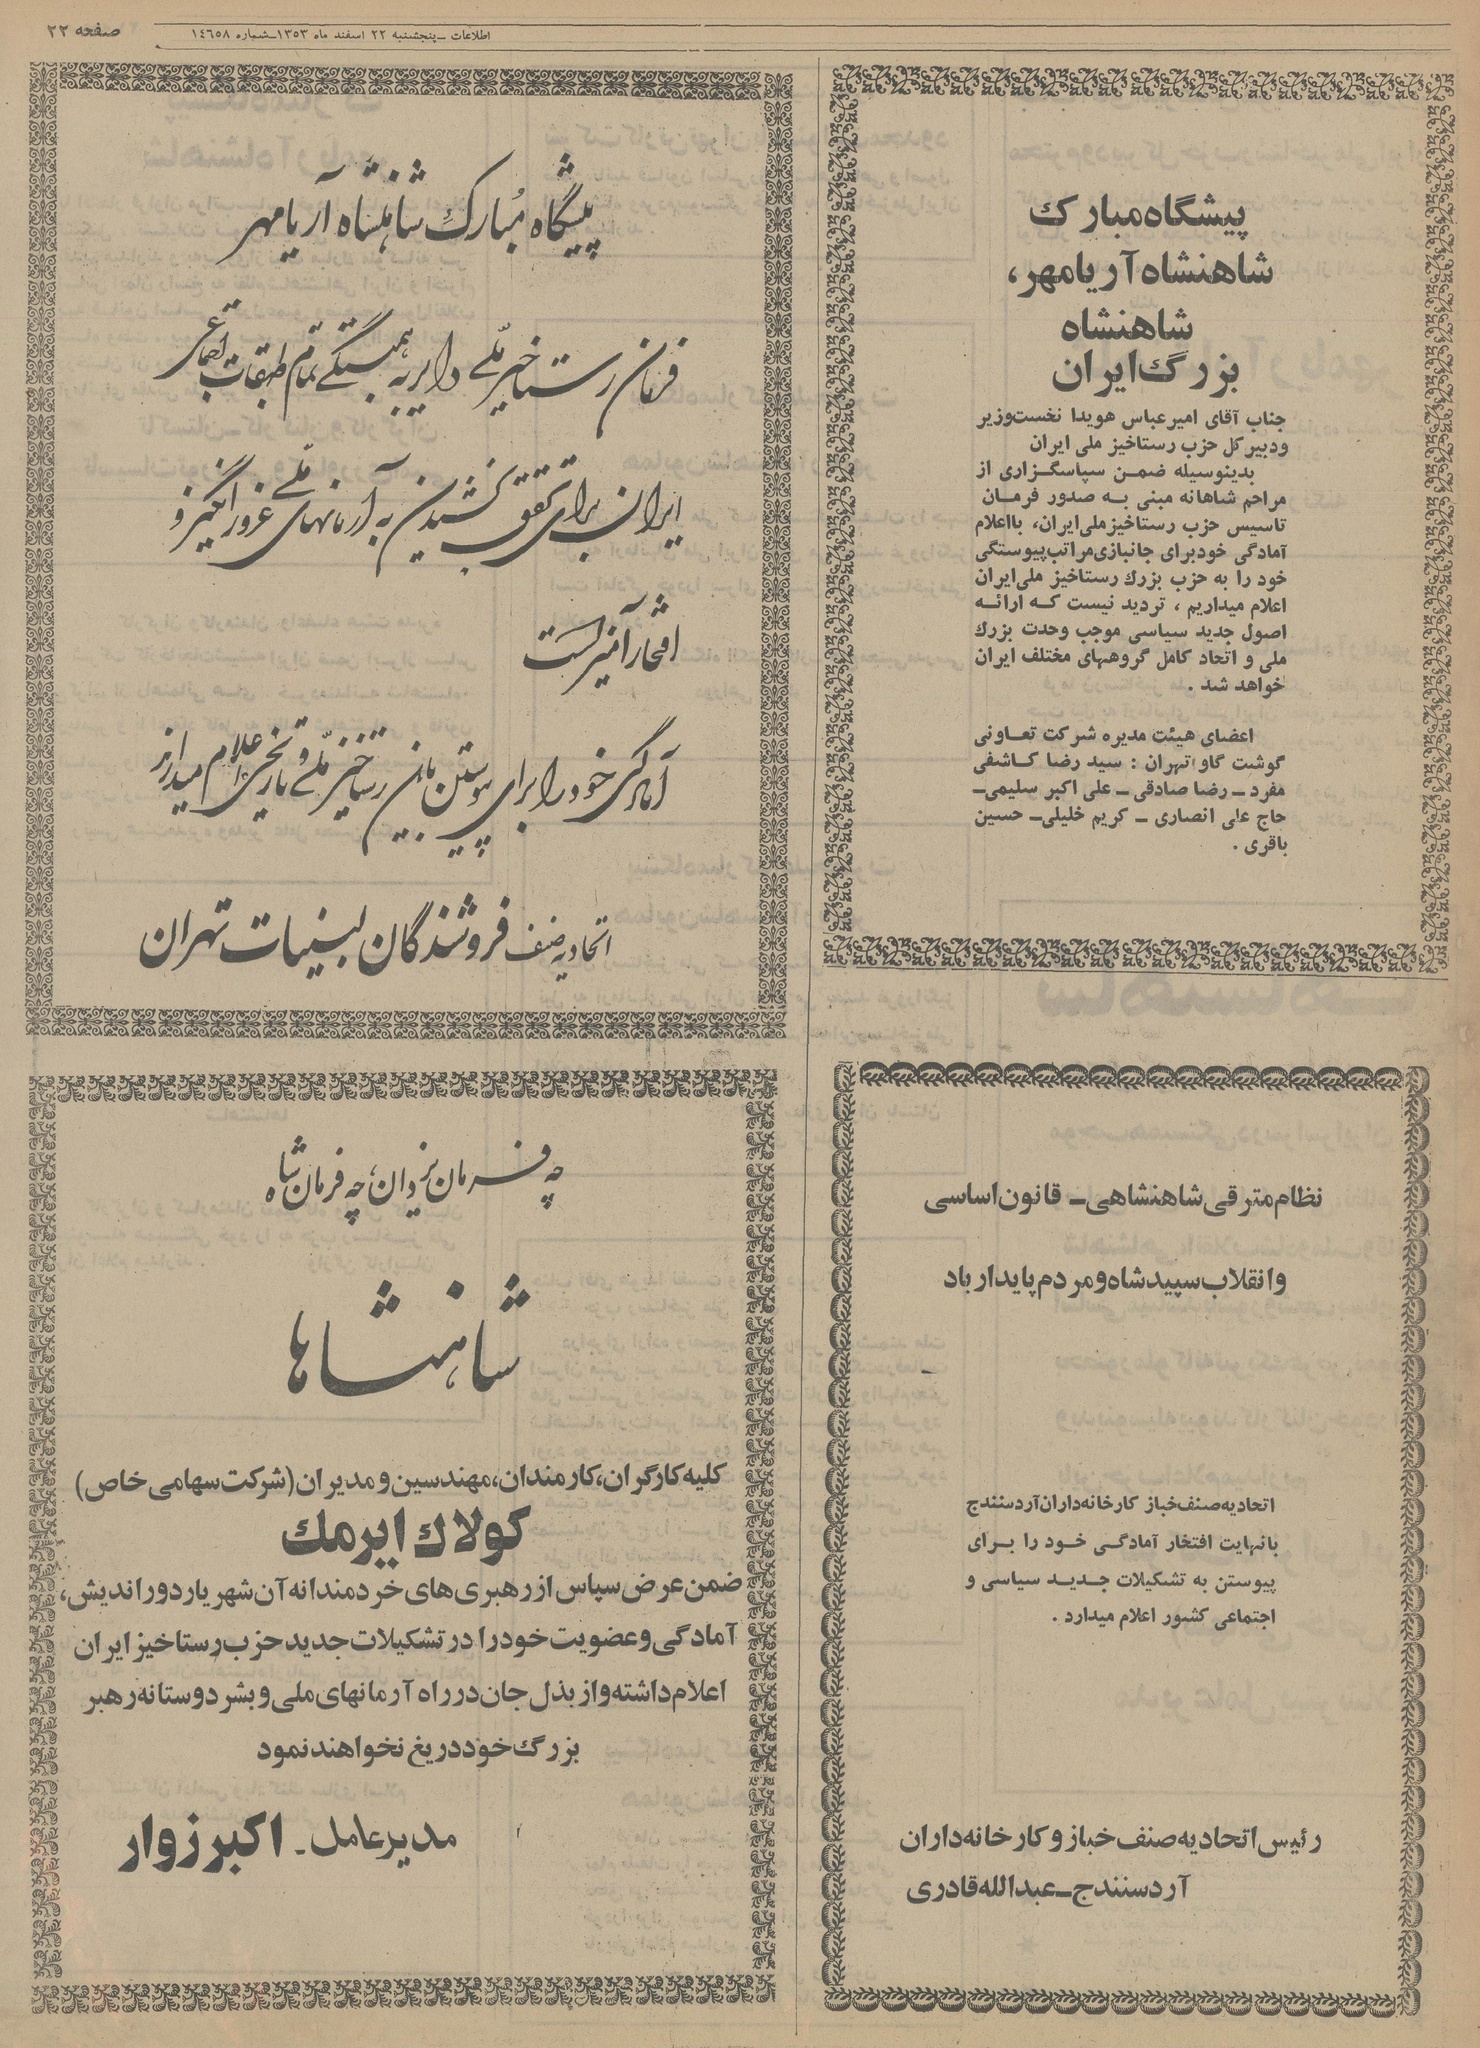 صفحه ۲۲
اطلاعات ــ پنجشنبه ۲۲ اسفند ماه ۱۳۵۳ ــ شماره ۱۴۶۵۸
پیشگاه مبارک
شاهنشاه آریامهر،
شاهنشاه
بزرگ ایران
جناب آقای امیرعباس هویدا نخست‌وزیر
ودبیرکل حزب رستاخیز ملی ایران
بدینوسیله ضمن سپاسگزاری از
مراحم شاهانه مبنی به صدور فرمان
تاسیس حزب رستاخیز ملی‌ایران، بااعلام
آمادگی خودبرای جانبازی‌مراتب‌پیوستگی
خود را به حزب بزرک رستاخیز ملی‌ایران
اعلام میداریم ، تردید نیست که ارائه
اصول جدید سیاسی موجب وحدت بزرک
ملی و اتحاد کامل گروههای مختلف ایران
خواهد شد .
اعضای هیئت مدیره شرکت تعاونی
گوشت گاو تهران : سید رضا کاشفی
مفرد ــ رضا صادقی ــ علی اکبر سلیمی ــ
حاج علی انصاری ــ کریم خلیلی ــ حسین
باقری .
پیشگاه مبارک شاهنشاه آریامهر
فرمان رستاخیز ملی دایر به همبستگی تمام طبقات اجتماعی
ایران برای تحقق بخشیدن به آرمانهای ملی غرورانگیز و
افتخارآمیز است
آمادگی خود را برای پیوستن باین رستاخیز ملی و تاریخی اعلام میدارند
اتحادیه صنف فروشندگان لبنیات تهران
نظام مترقی شاهنشاهی ــ قانون اساسی
وانقلاب سپید شاه و مردم پایدار باد
اتحادیه صنف خباز کارخانه‌داران آرد سنندج
بانهایت افتخار آمادگی خود را برای
پیوستن به تشکیلات جدید سیاسی و
اجتماعی کشور اعلام میدارد .
رئیس اتحادیه صنف خباز و کارخانه داران
آرد سنندج ــ عبدالله قادری
چه فرمان یزدان، چه فرمان شاه
شاهنشاها
کلیه کارگران، کارمندان، مهندسین و مدیران (شرکت سهامی خاص)
کولاک ایرمک
ضمن عرض سپاس از رهبری های خردمندانه آن شهریار دوراندیش،
آمادگی و عضویت خود را در تشکیلات جدید حزب رستاخیز ایران
اعلام داشته و از بذل جان در راه آرمانهای ملی و بشردوستانه رهبر
بزرگ خود دریغ نخواهند نمود
مدیرعامل ـ اکبر زوار